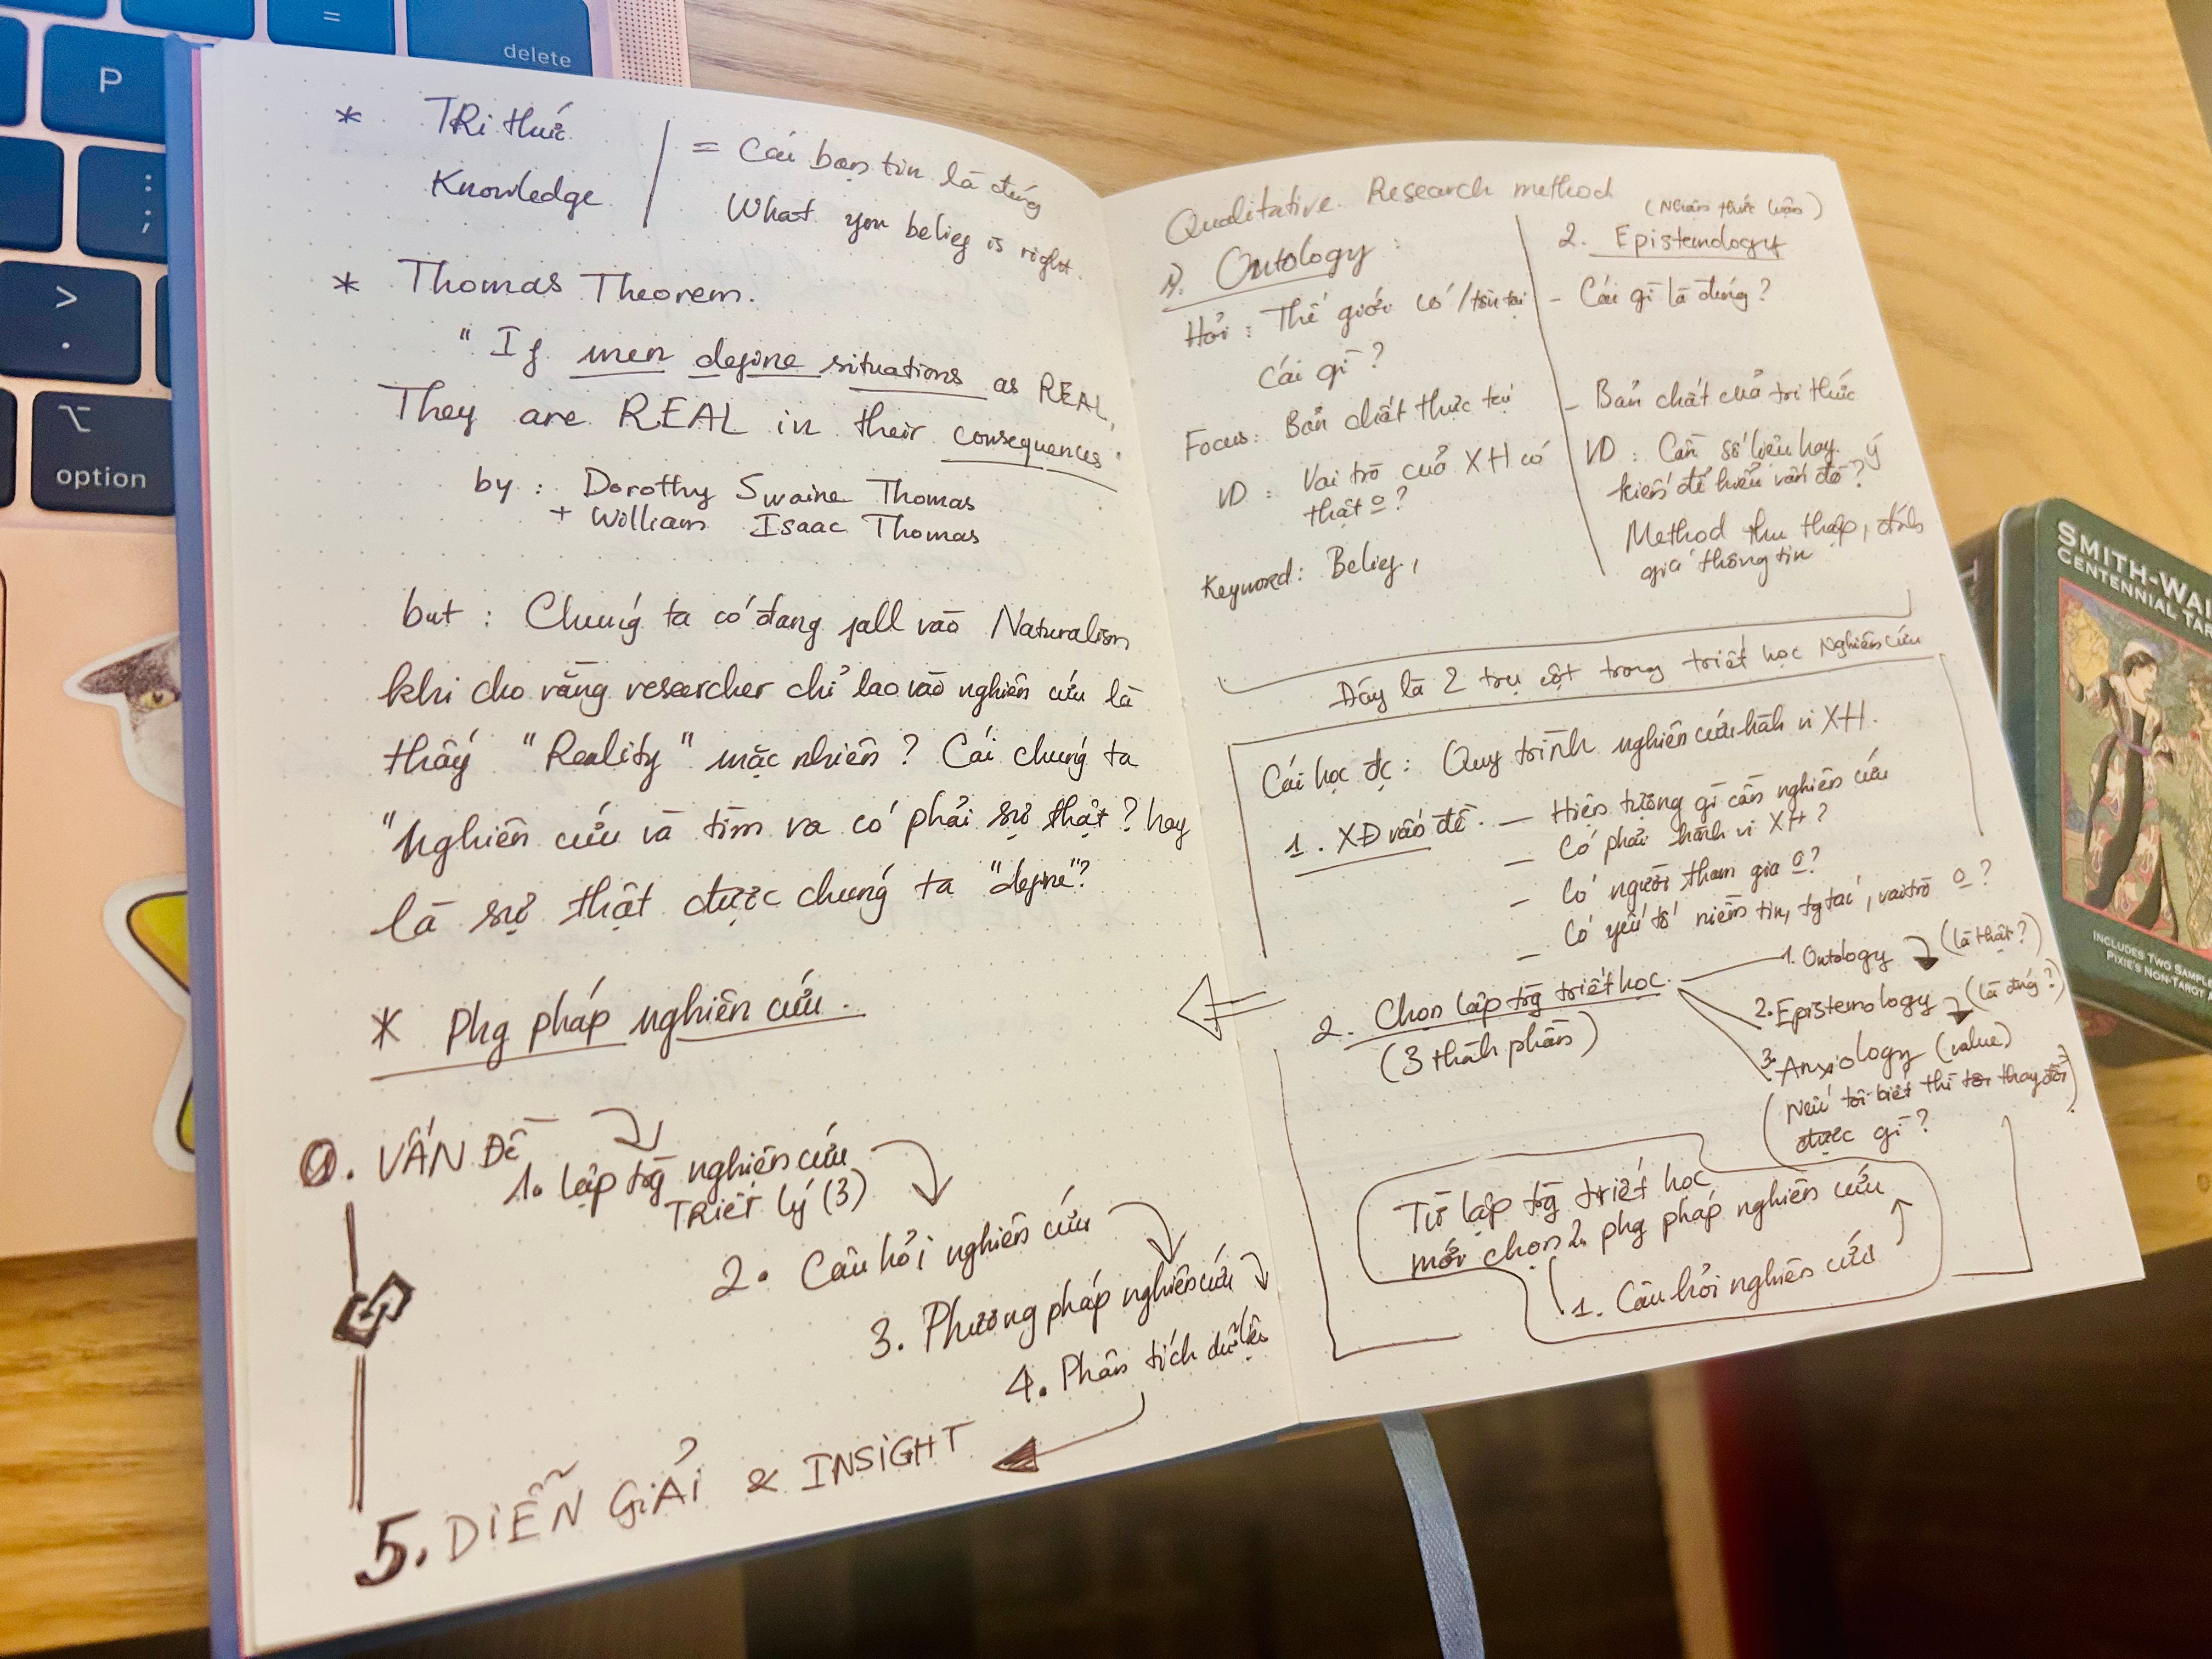 =
delete
P
:
;
>
.
⌥
option
* TRi thức
Knowledge
= Cái bạn tin là đúng
What you belief is right.
* Thomas Theorem.
" If men define situations as REAL,
They are REAL in their consequences."
by : Dorothy Swaine Thomas
+ William Isaac Thomas
but : Chúng ta có đang fall vào Naturalism
khi cho rằng researcher chỉ lao vào nghiên cứu là
thấy "Reality" mặc nhiên ? Cái chúng ta
"Nghiên cứu và tìm ra có phải sự thật ? hay
là sự thật được chúng ta "define"?
* Phg pháp nghiên cứu.
0. VẤN ĐỀ
1. lập trg nghiên cứu
TRIẾT lý (3)
2. Câu hỏi nghiên cứu
3. Phương pháp nghiên cứu
4. Phân tích dữ liệu
5. DIỄN GIẢI & INSIGHT
Qualitative Research method
1. Ontology :
Hỏi : Thế giới có /tồn tại
Cái gì ?
Focus: Bản chất thực tại
VD : Vai trò của XH có
thật o ?
Keyword: Belief,
(Nhận thức luận)
2. Epistemology
- Cái gì là đúng ?
- Bản chất của tri thức
VD : Cần số liệu hay ý
kiến để hiểu vấn đề ?
Method thu thập, đánh
giá thông tin
Đây là 2 trụ cột trong triết học Nghiên cứu
Cái học đc : Quy trình nghiên cứu hành vi XH.
1. XĐ vấn đề. — Hiện tượng gì cần nghiên cứu
— Có phải hành vi XH ?
- Có người tham gia o ?
- Có yếu tố niềm tin, tg tác, vai trò o ?
2. Chọn lập trg triết học.
(3 thành phần)
1. Ontology (là thật ?)
2. Epistemology (là đúng ?)
3. Anxiology (value)
(Nếu tôi biết thì tôi thay đổi
được gì ?)
Từ lập trg triết học
mới chọn 2. phg pháp nghiên cứu
1. Câu hỏi nghiên cứu
SMITH-WAI
CENTENNIAL TAR
INCLUDES TWO SAMPLE
PIXIE'S NON-TAROT